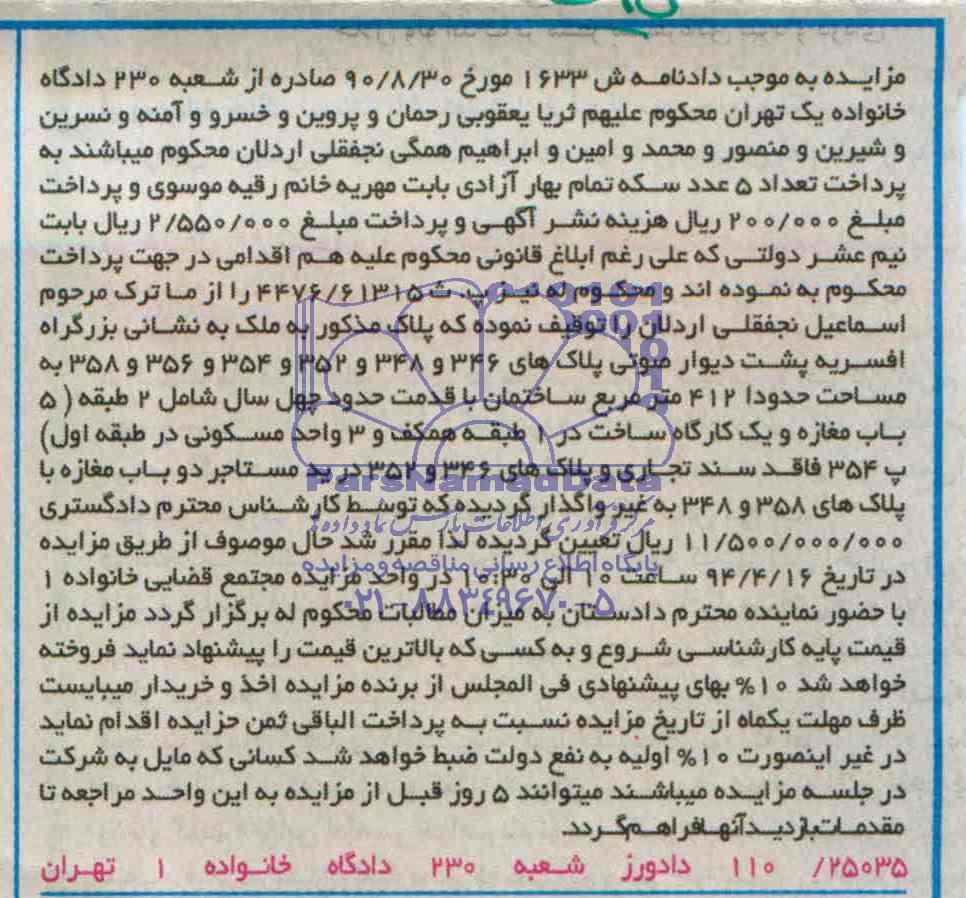 مزایده به موجب دادنامه ش ۱۶۳۳ مورخ ۹۰/۸/۳۰ صادره از شعبه ۲۳۰ دادگاه
خانواده یک تهران محکوم علیهم ثریا یعقوبی رحمان و پروین و خسرو و آمنه و نسرین
و شیرین و منصور و محمد و امین و ابراهیم همگی نجفقلی اردلان محکوم میباشند به
پرداخت تعداد ۵ عدد سکه تمام بهار آزادی بابت مهریه خانم رقیه موسوی و پرداخت
مبلغ ۲۰۰/۰۰۰ ریال هزینه نشر آگهی و پرداخت مبلغ ۲/۵۵۰/۰۰۰ ریال بابت
نیم عشر دولتی که علی رغم ابلاغ قانونی محکوم علیه هم اقدامی در جهت پرداخت
محکوم به نموده اند و محکوم له نیز پ. ث ۴۴۷۶/۶۱۳۱۵ را از ما ترک مرحوم
اسماعیل نجفقلی اردلان را توقیف نموده که پلاک مذکور به ملک به نشانی بزرگراه
افسریه پشت دیوار صوتی پلاک های ۳۴۶ و ۳۴۸ و ۳۵۲ و ۳۵۴ و ۳۵۶ و ۳۵۸ به
مساحت حدودا ۴۱۲ متر مربع ساختمان با قدمت حدود چهل سال شامل ۲ طبقه (۵
باب مغازه و یک کارگاه ساخت در ۱ طبقه همکف و ۳ واحد مسکونی در طبقه اول)
پ ۳۵۴ فاقد سند تجاری و پلاک های ۳۴۶ و ۳۵۲ در ید مستاجر دو باب مغازه با
ParsNamadData
پلاک های ۳۵۸ و ۳۴۸ به غیر واگذار گردیده که توسط کارشناس محترم دادگستری
مرکز فرآوری اطلاعات پارس نماد داده ها
۱۱/۵۰۰/۰۰۰/۰۰۰ ریال تعیین گردیده لذا مقرر شد حال موصوف از طریق مزایده
پایگاه اطلاع رسانی مناقصه و مزایده
در تاریخ ۹۴/۴/۱۶ ساعت ۱۰ الی ۱۰:۳۰ در واحد مزایده مجتمع قضایی خانواده ۱
۰۲۱-۸۸۳۴۹۶۷۰-۵
با حضور نماینده محترم دادستان به میزان مطالبات محکوم له برگزار گردد مزایده از
قیمت پایه کارشناسی شروع و به کسی که بالاترین قیمت را پیشنهاد نماید فروخته
خواهد شد ۱۰% بهای پیشنهادی فی المجلس از برنده مزایده اخذ و خریدار میبایست
ظرف مهلت یکماه از تاریخ مزایده نسبت به پرداخت الباقی ثمن حزایده اقدام نماید
در غیر اینصورت ۱۰% اولیه به نفع دولت ضبط خواهد شد کسانی که مایل به شرکت
در جلسه مزایده میباشند میتوانند ۵ روز قبل از مزایده به این واحد مراجعه تا
مقدمات بازدید آنها فراهم گردد.
۲۵۰۳۵/ ۱۱۰ دادورز شعبه ۲۳۰ دادگاه خانواده ۱ تهران